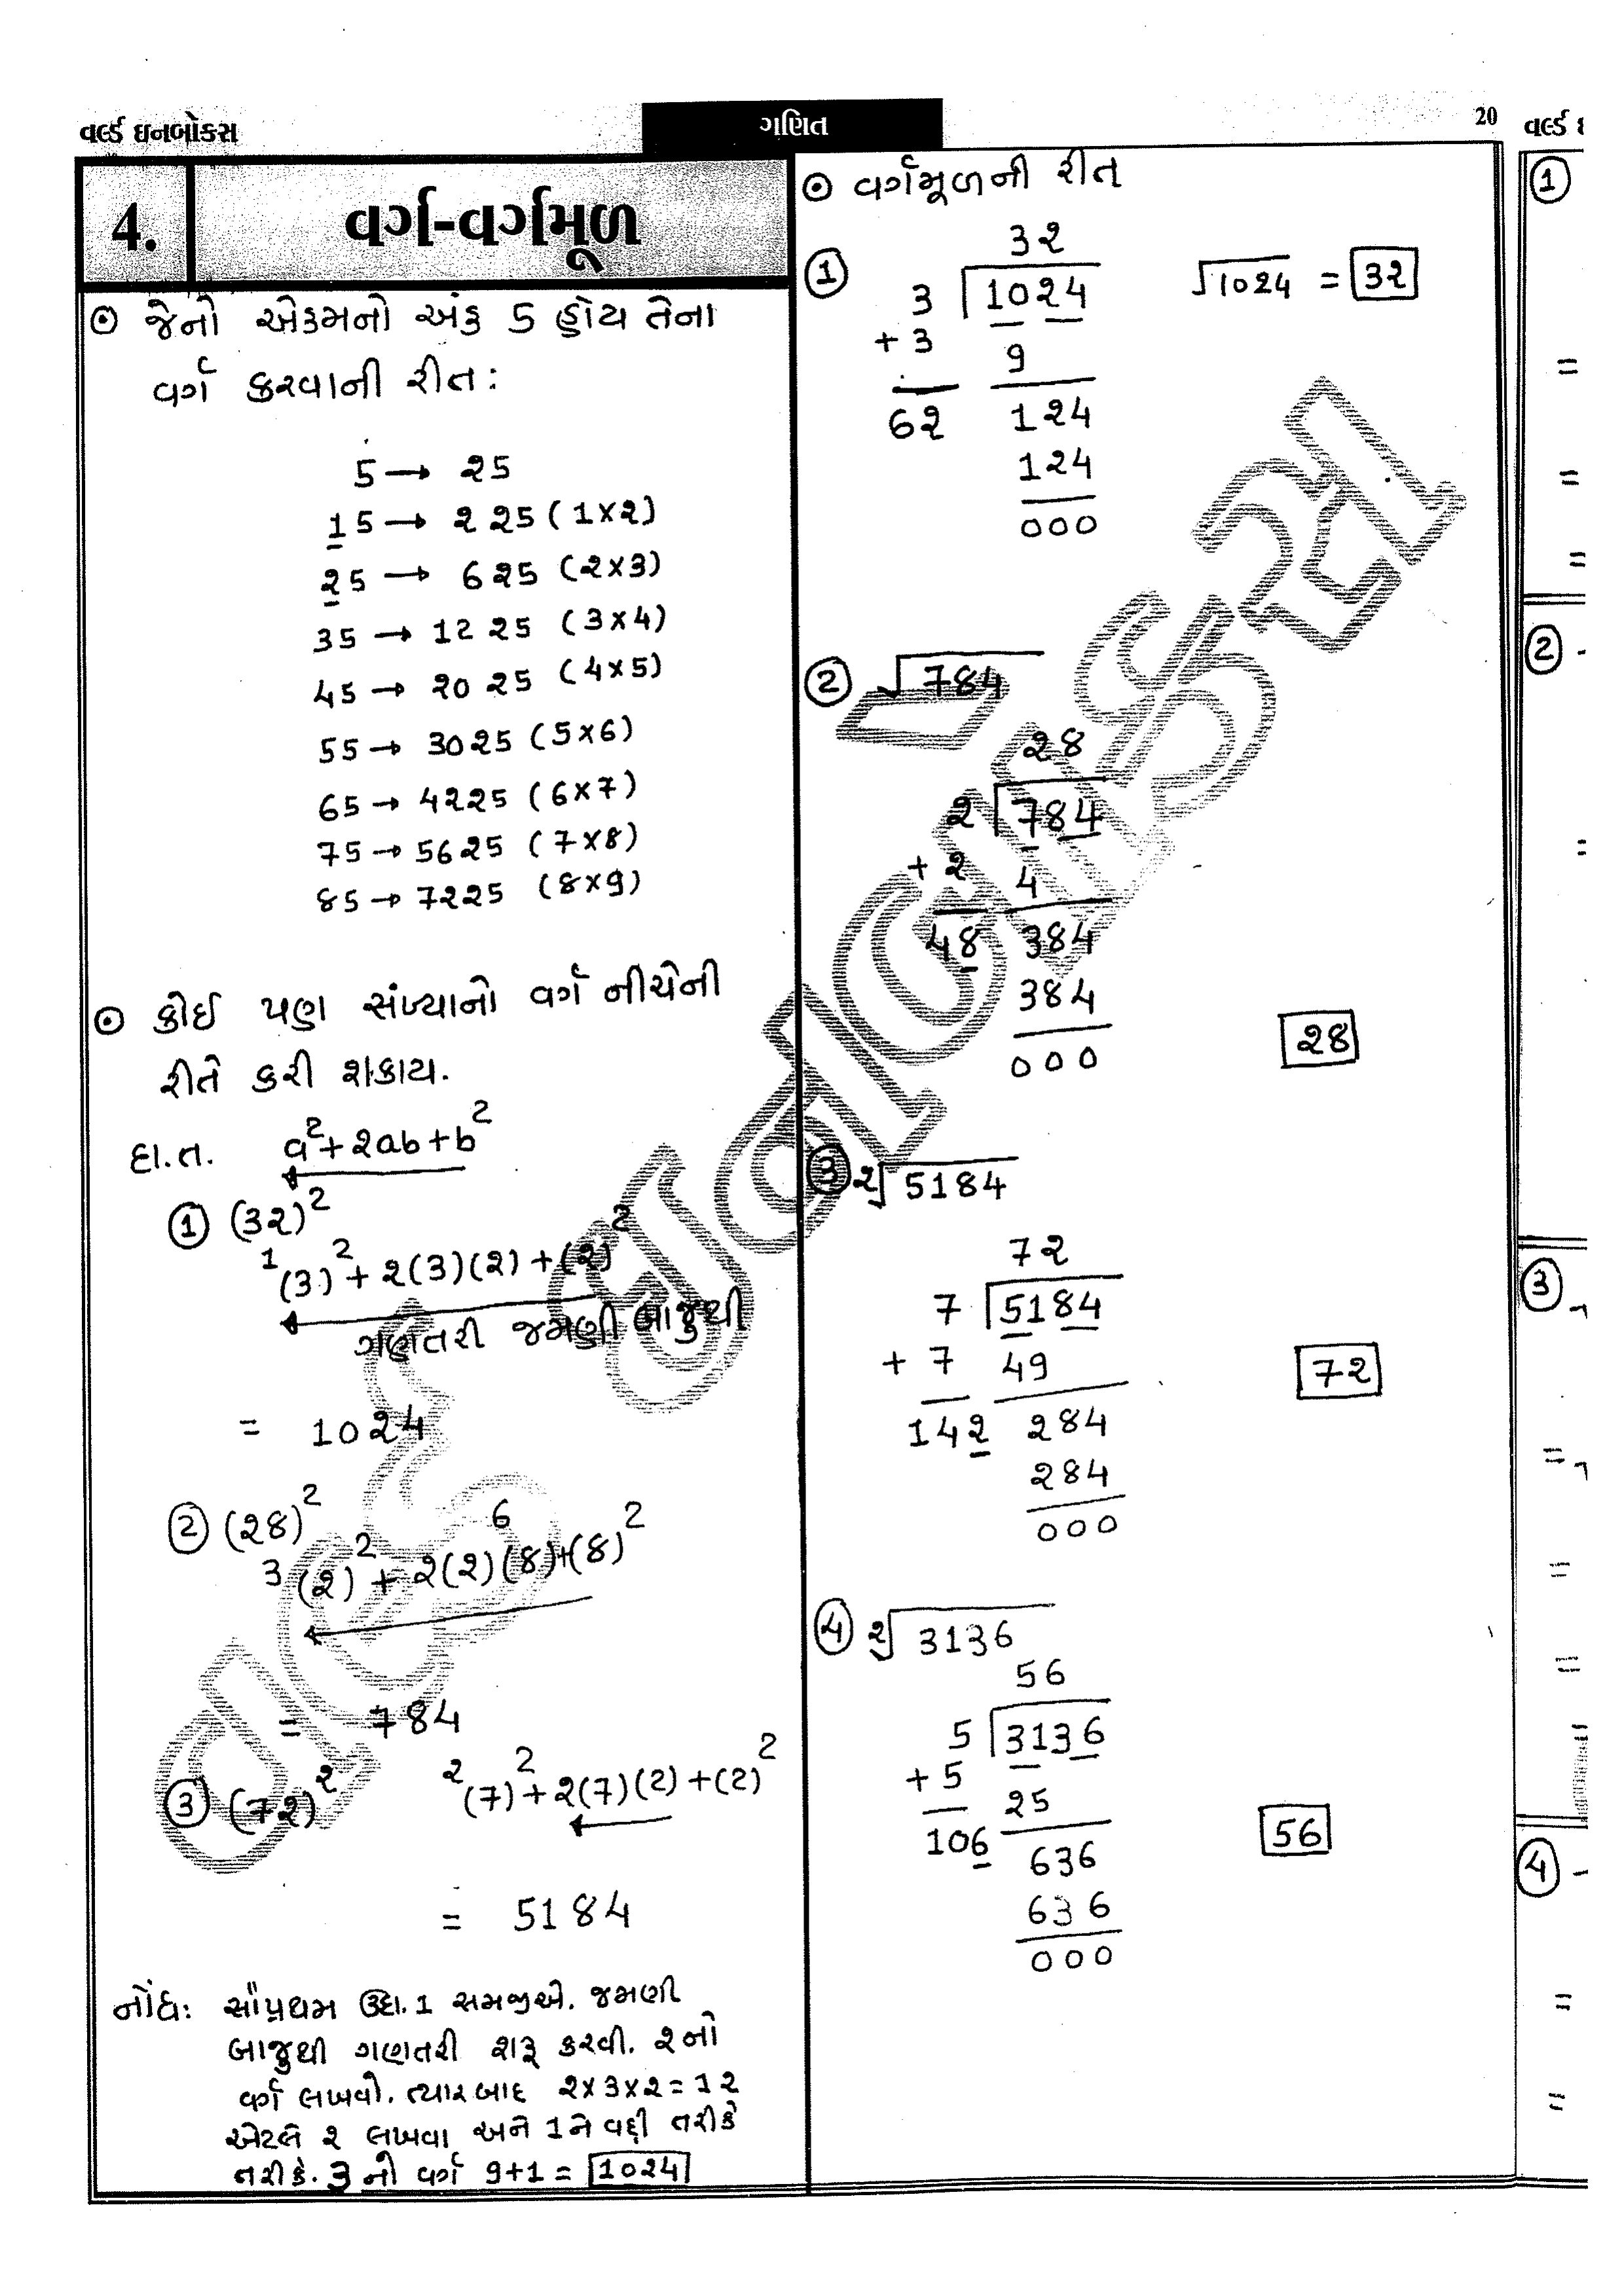 વર્લ્ડ ઇનબોક્સ
ગણિત
20
4.
વર્ગ-વર્ગમૂળ
⊙ જેનો એકમનો અંક 5 હોય તેના
વર્ગ કરવાની રીત:
5 → 25
15 → 225 (1×2)
25 → 625 (2×3)
35 → 1225 (3×4)
45 → 2025 (4×5)
55 → 3025 (5×6)
65 → 4225 (6×7)
75 → 5625 (7×8)
85 → 7225 (8×9)
⊙ કોઈ પણ સંખ્યાનો વર્ગ નીચેની
રીતે કરી શકાય.
દા.ત. a²+2ab+b²
① (32)²
¹(3)²+2(3)(2)+(2)²
ગણતરી જમણી બાજુથી
= 1024
② (28)²
³(2)²+2(2)⁶(8)+(8)²
= 784
③ (72)² ²(7)²+2(7)(2)+(2)²
= 5184
નોંધ: સૌપ્રથમ ઉદા.1 સમજીએ. જમણી
બાજુથી ગણતરી શરૂ કરવી. 2નો
વર્ગ લખવો. ત્યાર બાદ 2×3×2=12
એટલે 2 લખવા અને 1ને વદ્દી તરીકે
તરીકે. 3 નો વર્ગ 9+1 = 1024
⊙ વર્ગમૂળની રીત
①
32
3 1024 √1024 = 32
+3 9
62 124
124
000
② √784
28
2 784
+2 4
48 384
384
000 28
③ ²√5184
72
7 5184
+7 49 72
142 284
284
000
④ ²√3136
56
5 3136
+5 25
106 636 56
636
000
વર્લ્ડ
①
=
=
=
②
③
=
=
=
④
=
=